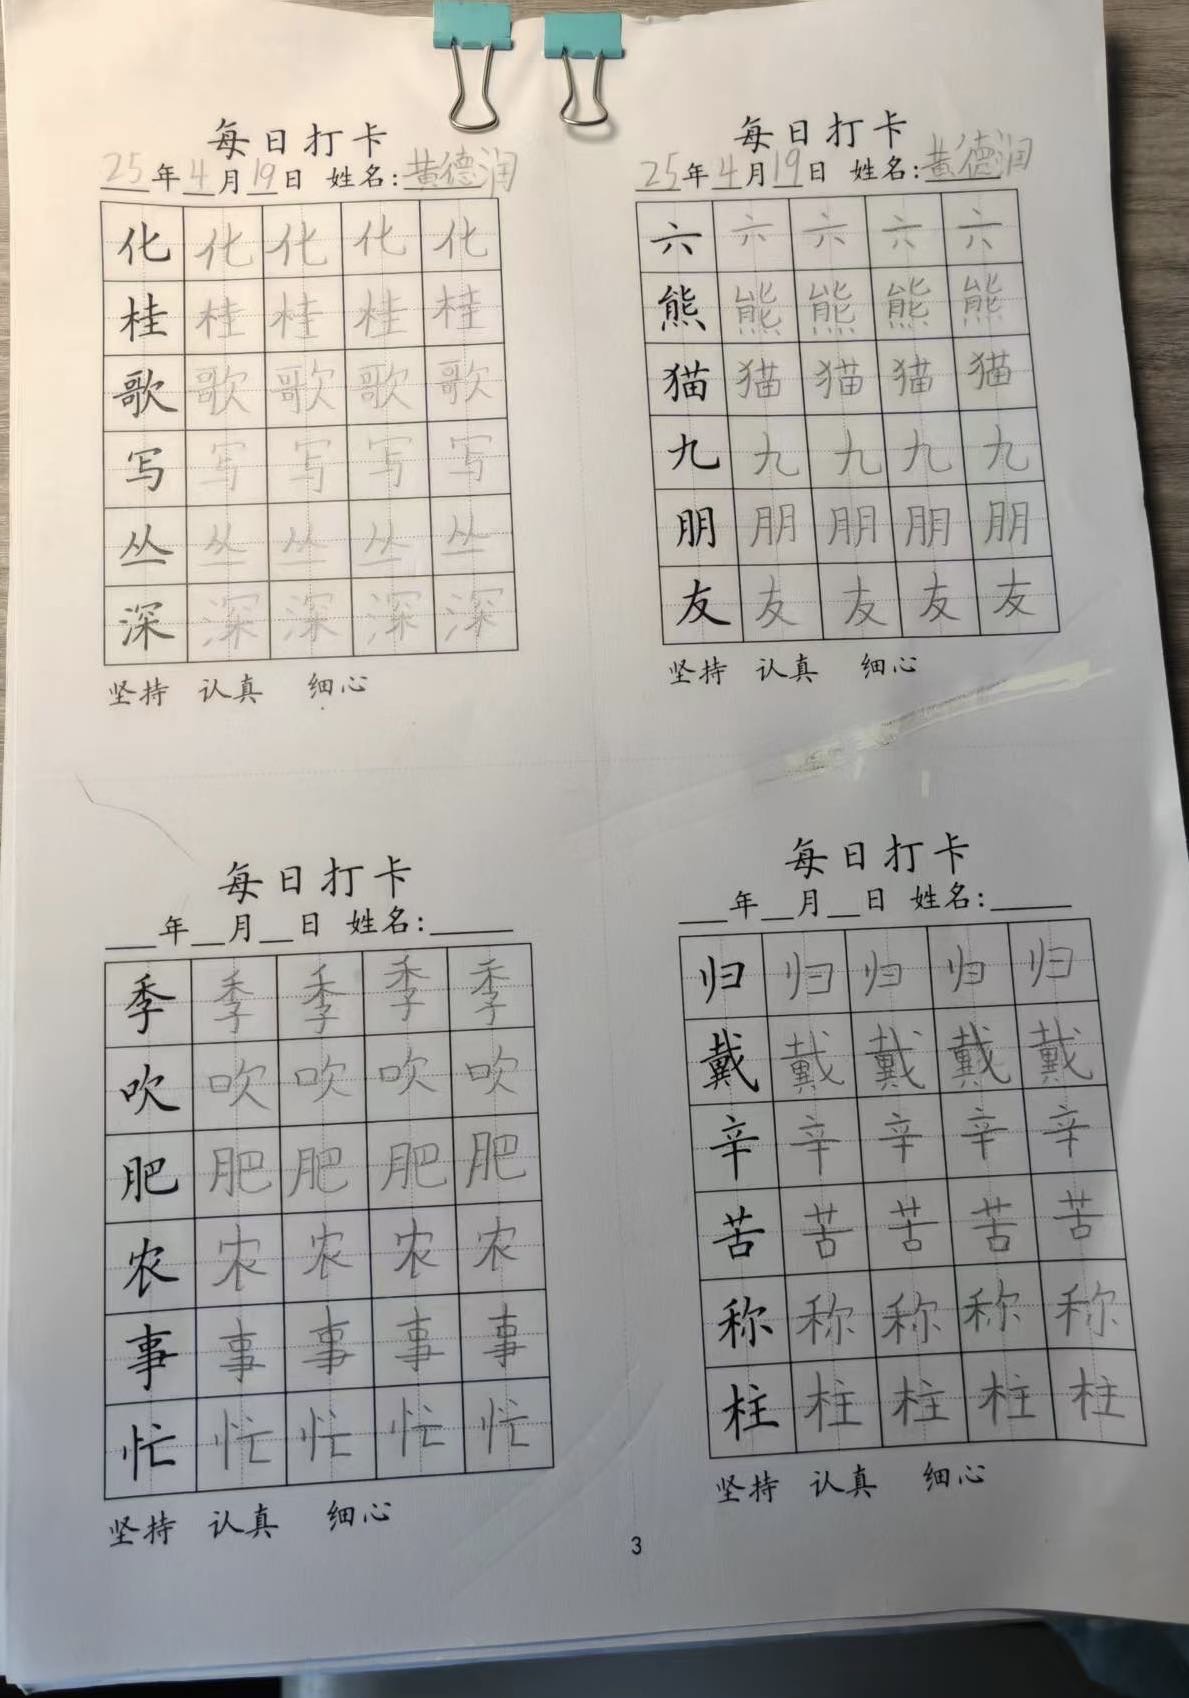 每日打卡
25年4月19日 姓名:黄德润
化 化 化 化 化
桂 桂 桂 桂 桂
歌 歌 歌 歌 歌
写 写 写 写 写
丛 丛 丛 丛 丛
深 深 深 深 深
坚持 认真 细心
每日打卡
25年4月19日 姓名:黄德润
六 六 六 六 六
熊 熊 熊 熊 熊
猫 猫 猫 猫 猫
九 九 九 九 九
朋 朋 朋 朋 朋
友 友 友 友 友
坚持 认真 细心
每日打卡
___年__月__日 姓名:_____
季 季 季 季 季
吹 吹 吹 吹 吹
肥 肥 肥 肥 肥
农 农 农 农 农
事 事 事 事 事
忙 忙 忙 忙 忙
坚持 认真 细心
每日打卡
___年__月__日 姓名:_____
归 归 归 归 归
戴 戴 戴 戴 戴
辛 辛 辛 辛 辛
苦 苦 苦 苦 苦
称 称 称 称 称
柱 柱 柱 柱 柱
坚持 认真 细心
3